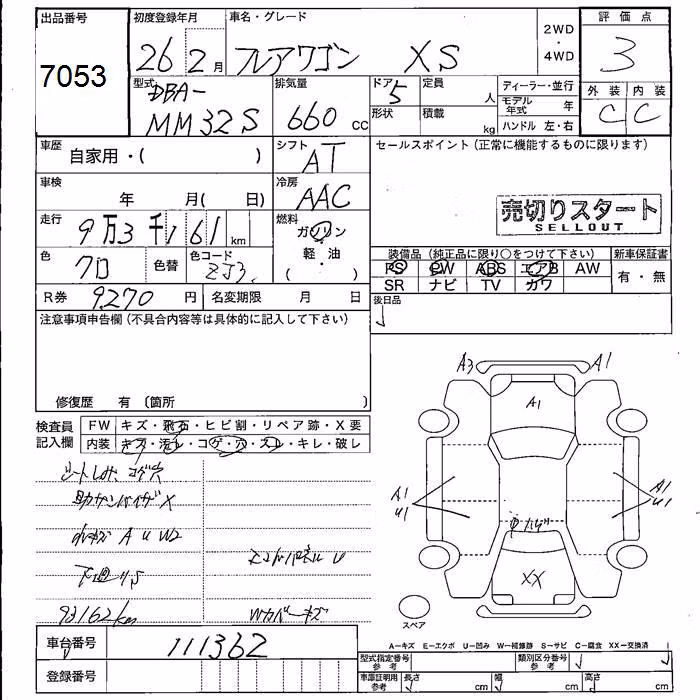 出品番号
7053
初度登録年月
26 2月
車名・グレード
フレアワゴン XS
2WD
・
4WD
評価点
3
外装 内装
C C
型式
DBA-
MM32S
排気量
660 cc
ドア
5
形状
定員
人
積載
kg
ディーラー・並行
モデル年式 年
ハンドル 左・右
車歴
自家用・( )
シフト
AT
セールスポイント(正常に機能するものに限ります)
車検
年 月( 日)
冷房
AAC
売切りスタート
SELLOUT
走行
9万3千161km
燃料
ガソリン
・
軽・油
( )
色
クロ
色替
色コード
ZJ3
装備品(純正品に限り○をつけて下さい)
PS PW ABS エアB AW
SR ナビ TV カワ
新車保証書
有・無
R券 9270円
名変期限 月 日
後日品
注意事項申告欄(不具合内容等は具体的に記入して下さい)
修復歴 有 〔箇所
検査員
記入欄
FW キズ・飛石・ヒビ割・リペア跡・X要
内装 キズ・汚レ・コゲ・穴・スレ・キレ・破レ
シートしみ、コゲ穴
助サンバイザX
A U W2
下廻りS
93162km
エンドパネルU
Wカバーキズ
A3 A1
A1
A1
U1
A1
U1
XX
スペア
A=キズ E=エクボ U=凹み W=補修跡 S=サビ C=腐食 XX=交換済
車台番号
111362
登録番号
型式指定番号
参考
類別区分番号
参考
車庫証明用
参考
長さ cm
幅 cm
高さ cm